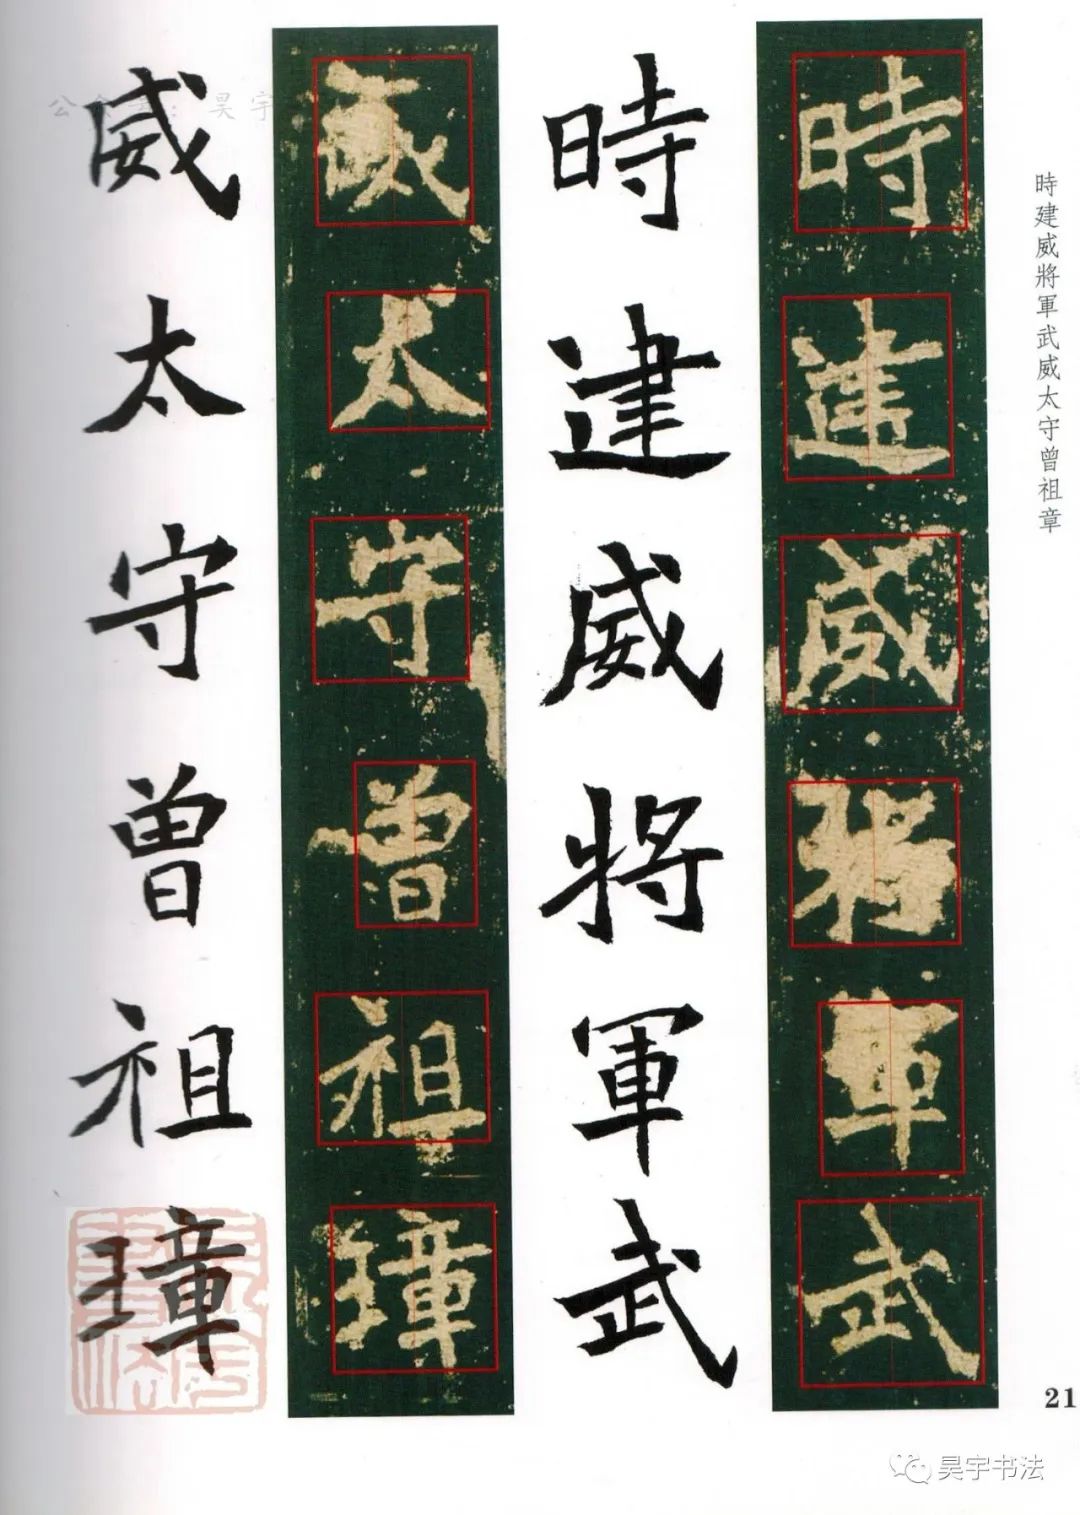 時建威將軍武威太守曾祖章
時建威將軍武
時建威將軍武
威太守曾祖璋
威太守曾祖璋
21
昊宇书法